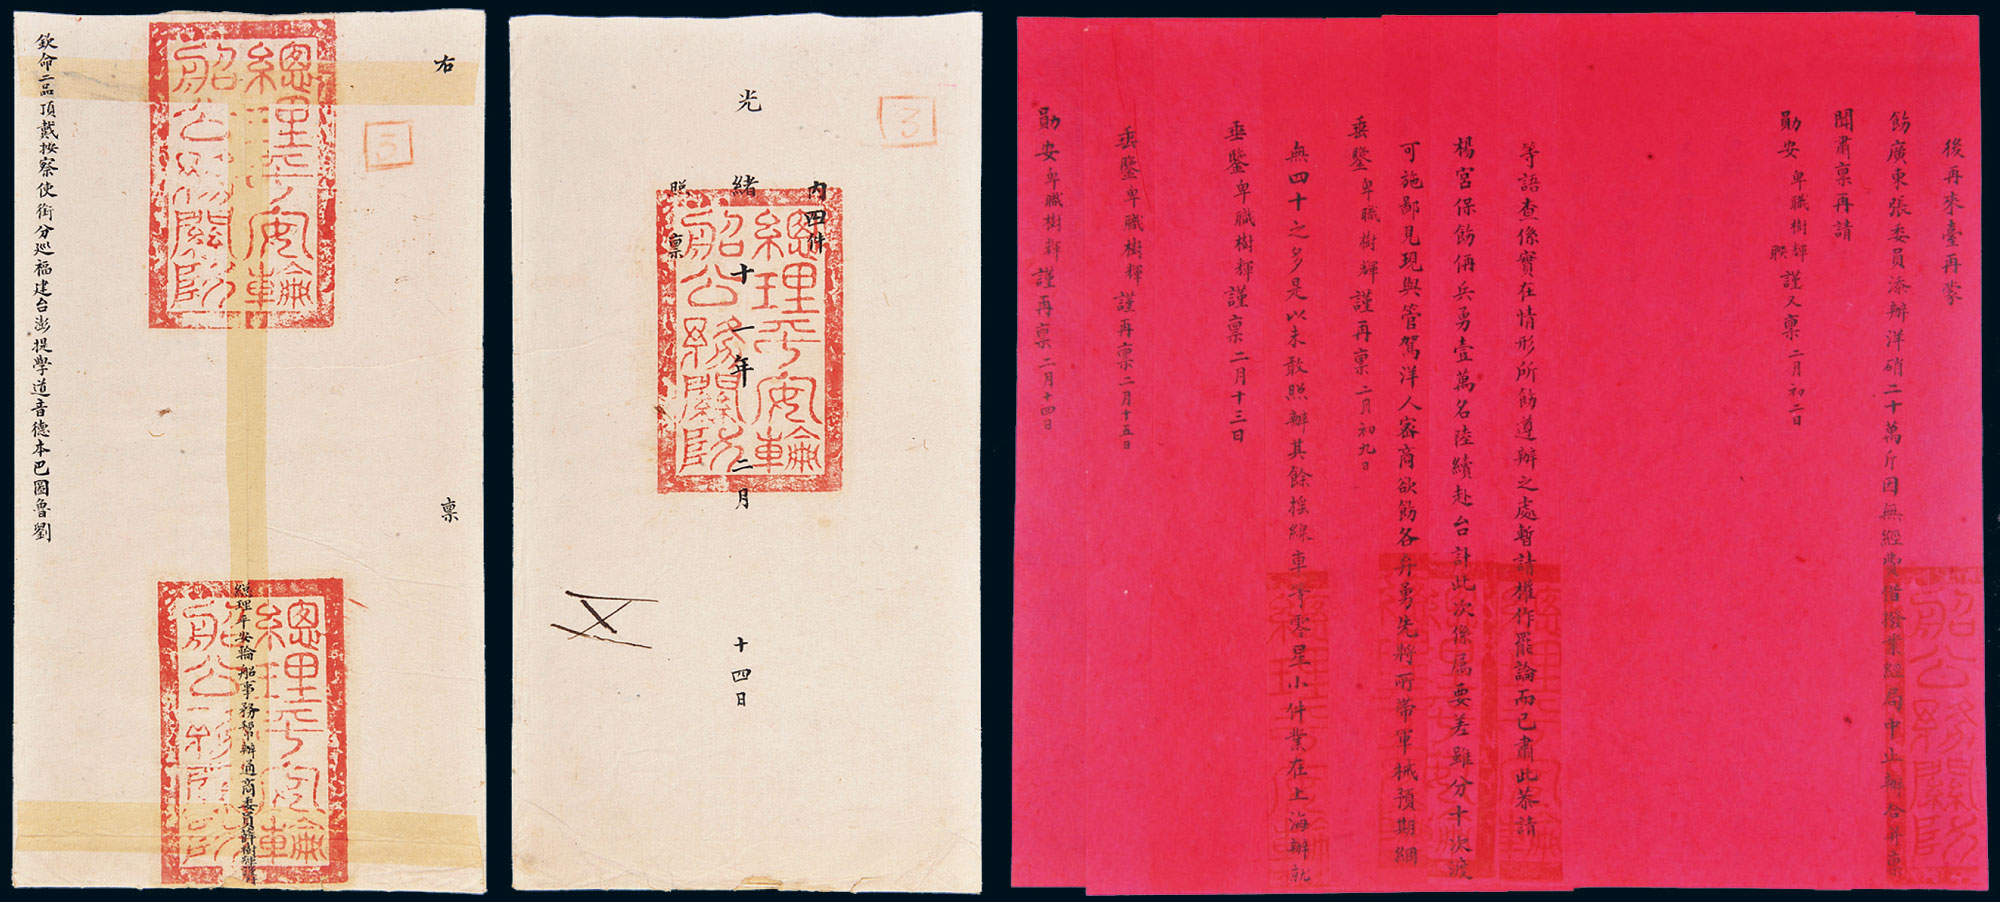 右
稟
總理平安輪
船公務關防
3
總理平安輪船事務幫辦通商委員薛樹輝謹
總理平安輪
船公務關防
欽命二品頂戴按察使銜分巡福建台澎提學道音德本巴圖魯劉
3
內四件
光緒十一年二月十四日
照稟
總理平安輪
船公務關防
後再來臺再蒙
飭廣東張委員添辦洋硝二十萬斤因無經費借撥業經局中止辦合併稟
聞肅稟再請
勛安卑職樹輝謹又稟二月初二日
船公務關防
等語查係實在情形所飭遵辦之處暫請權作罷論而已肅此恭請
楊宮保飭俩兵勇壹萬名陸續赴台計此次係屬要差雖分十次渡
可施鄙見現與管駕洋人密商欲飭各弁勇先將所帶軍械預期綑
垂鑒卑職樹輝謹再稟二月初九日
無四十之多是以未敢照辦其餘搖線車等零星小件業在上海辦就
垂鑒卑職樹輝謹稟二月十三日
垂鑒卑職樹輝謹再稟二月十五日
勛安卑職樹輝謹再稟二月十四日